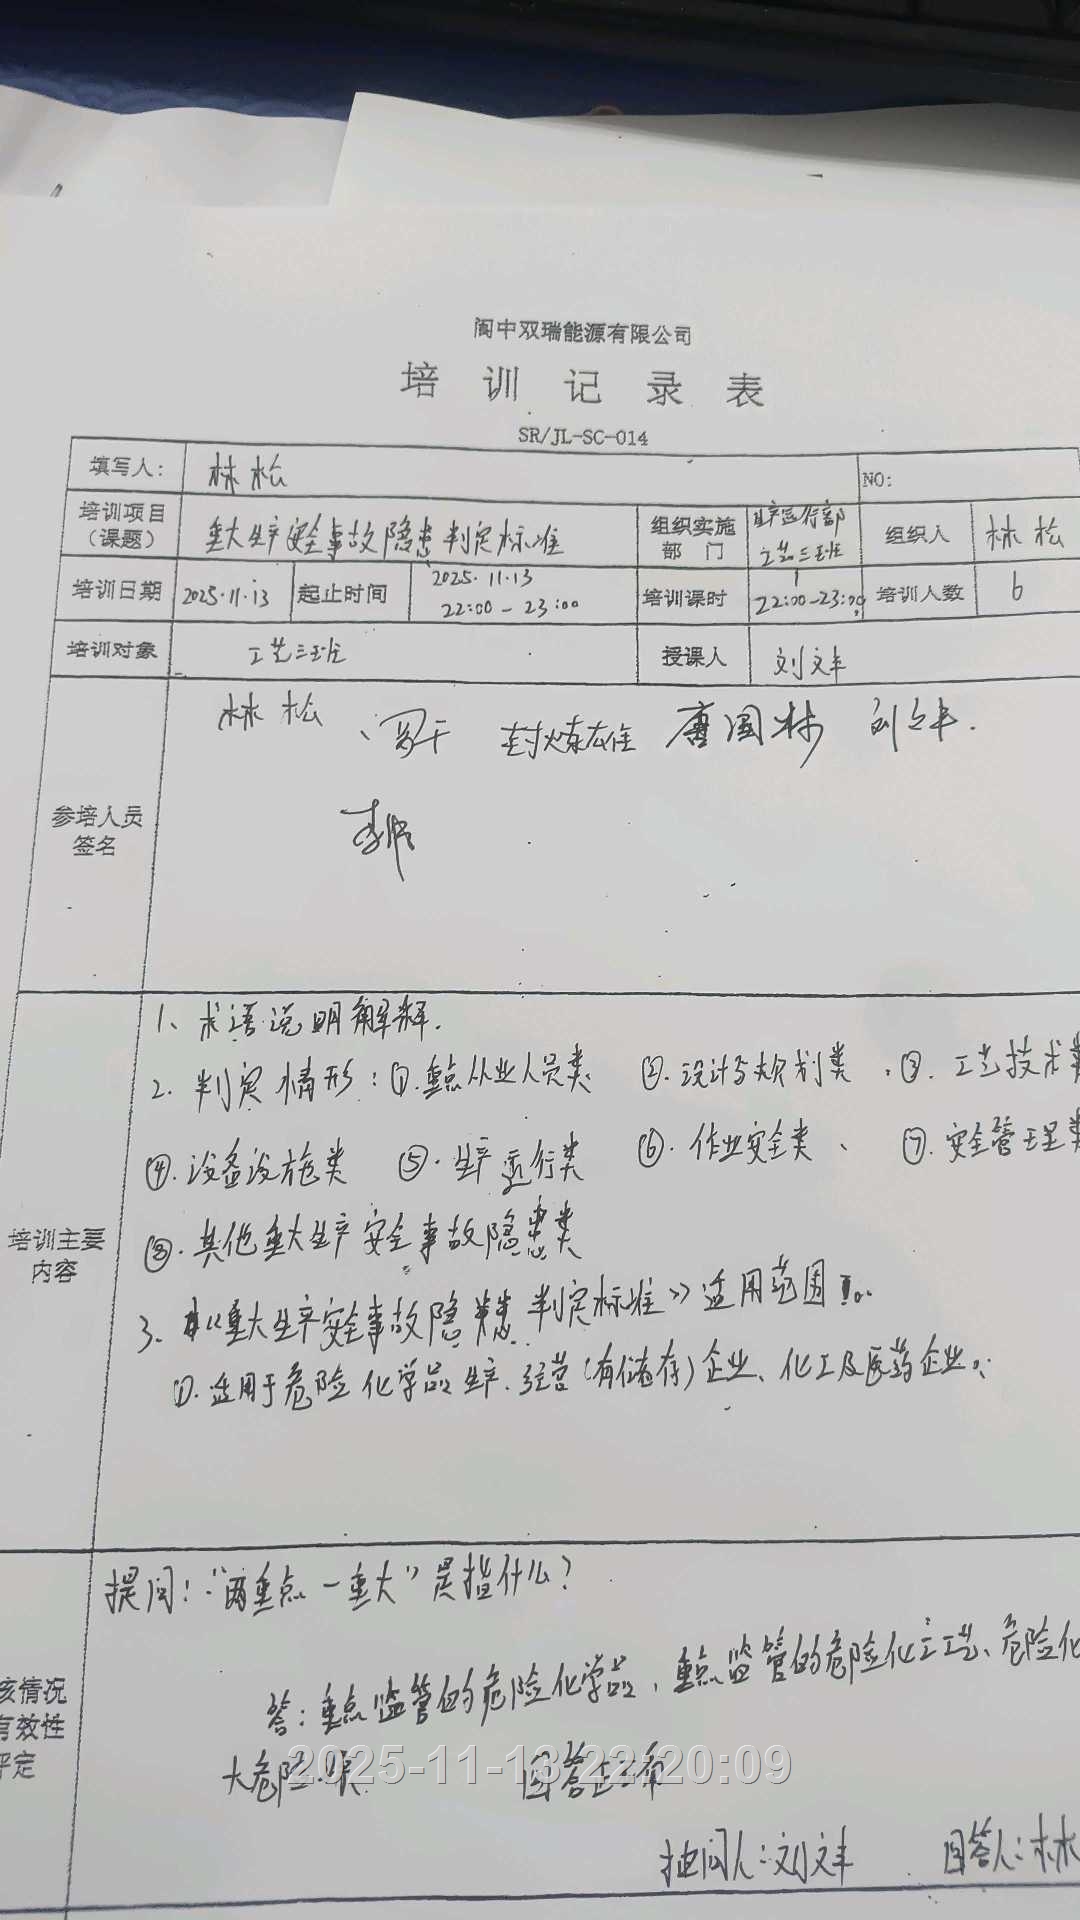 阆中双瑞能源有限公司
培训记录表
SR/JL-SC-014
填写人: 林松 NO:
培训项目(课题) 重大生产安全事故隐患判定标准 组织实施部门 生产运行部工艺三班 组织人 林松
培训日期 2025.11.13 起止时间 2025.11.13 22:00-23:00 培训课时 22:00-23:00 培训人数 6
培训对象 工艺三班 授课人 刘文丰
参培人员签名
林松、罗干 封炼雄 唐国林 刘文丰.
培训主要内容
1、术语说明解释.
2.判定情形:①.重点从业人员类 ②.设计与规划类、③.工艺技术
④.设备设施类 ⑤.生产运行类 ⑥.作业安全类、 ⑦.安全管理
⑧.其他重大生产安全事故隐患类
3.《重大生产安全事故隐患判定标准》适用范围
①.适用于危险化学品生产、经营(有储存)企业、化工及医药企业。
核情况
有效性
评定
提问:"两重点一重大"是指什么?
答:重点监管的危险化学品、重点监管的危险化工工艺、危险化
大危险源 回答正确
抽问人:刘文丰 回答人:林
2025-11-13 22:20:09